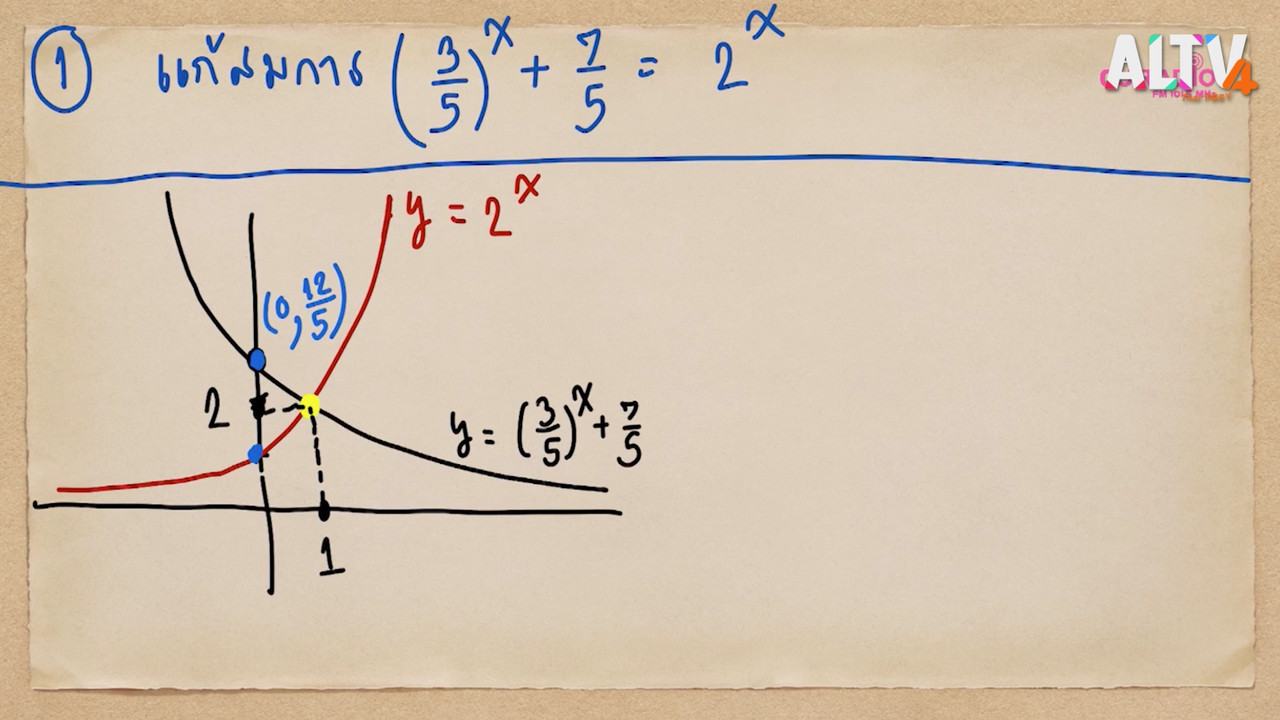 ① แก้สมการ (3/5)^x + 7/5 = 2^x
ALTV4
y = 2^x
(0, 12/5)
2
y = (3/5)^x + 7/5
1